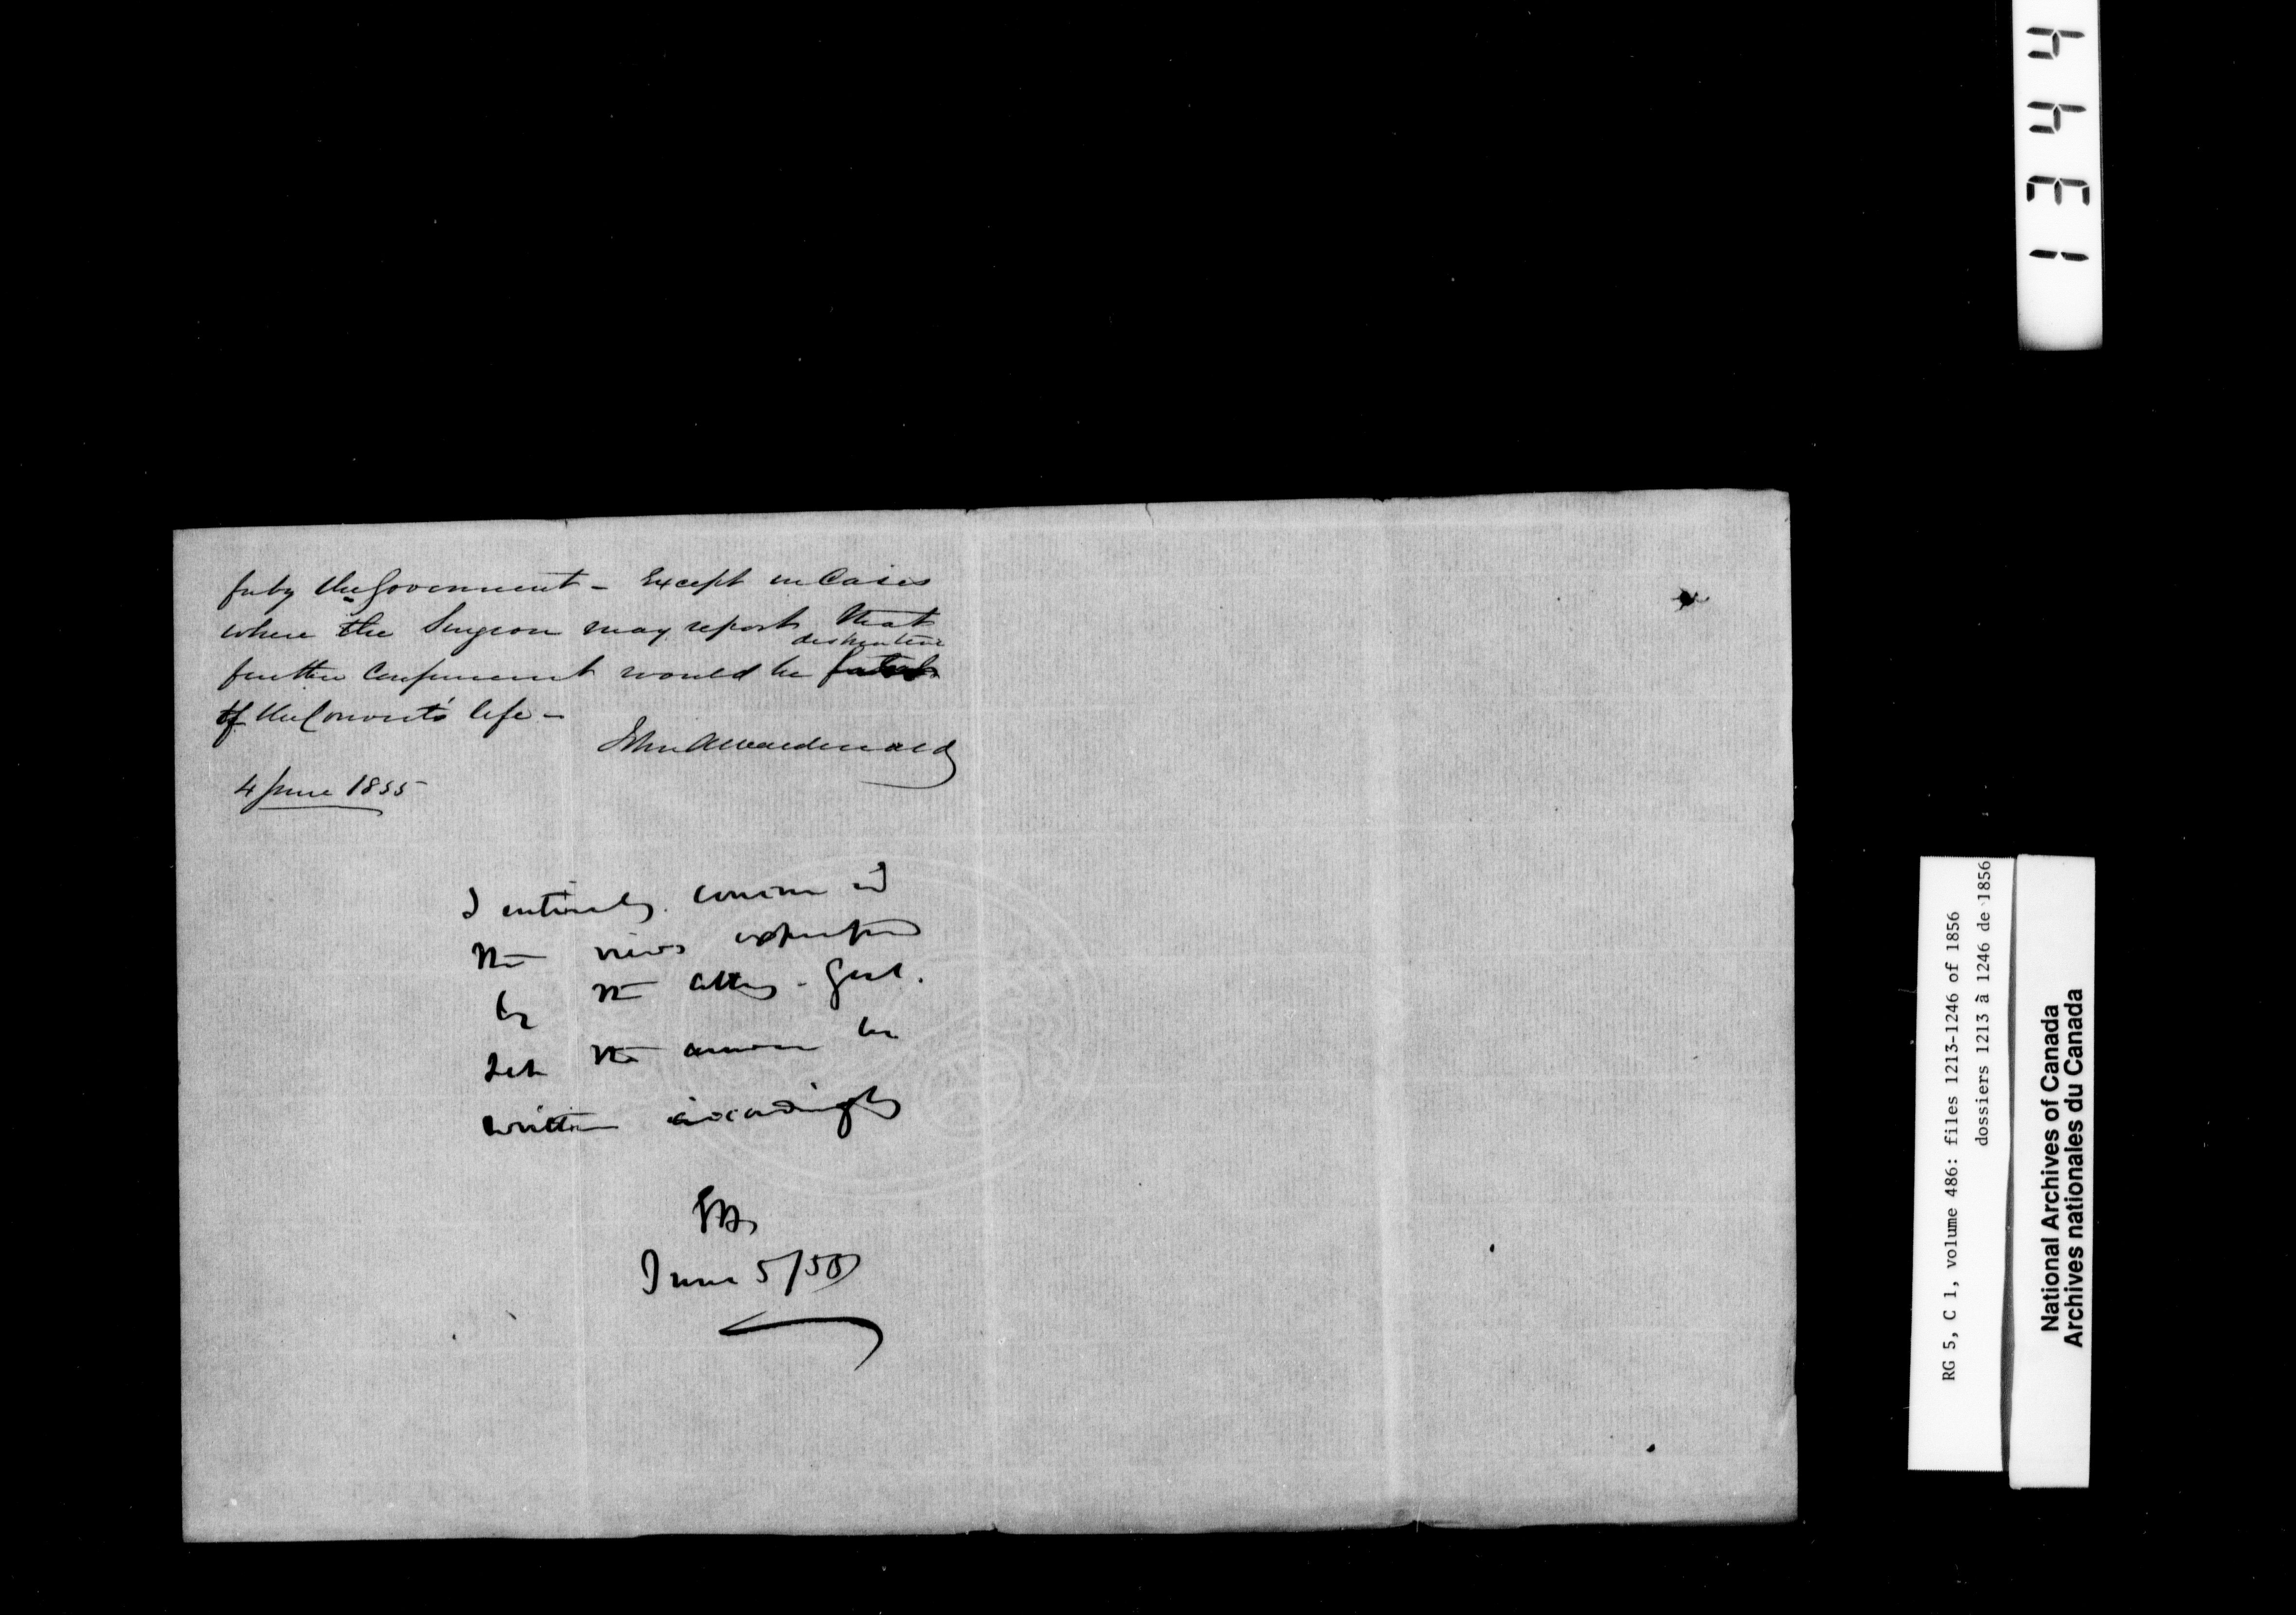 fer by the Government - Except in Cases
where the Surgeon may report that
destructive
further confinement would be fatal
of the Convict's life -
John A Macdonald
4 June 1855
I entirely concur in
the views expressed
by the Atty - Genl.
Let the answer be
written accordingly
June 5/55
1344
RG 5, C 1, volume 486: files 1213-1246 of 1856
dossiers 1213 à 1246 de 1856
National Archives of Canada
Archives nationales du Canada